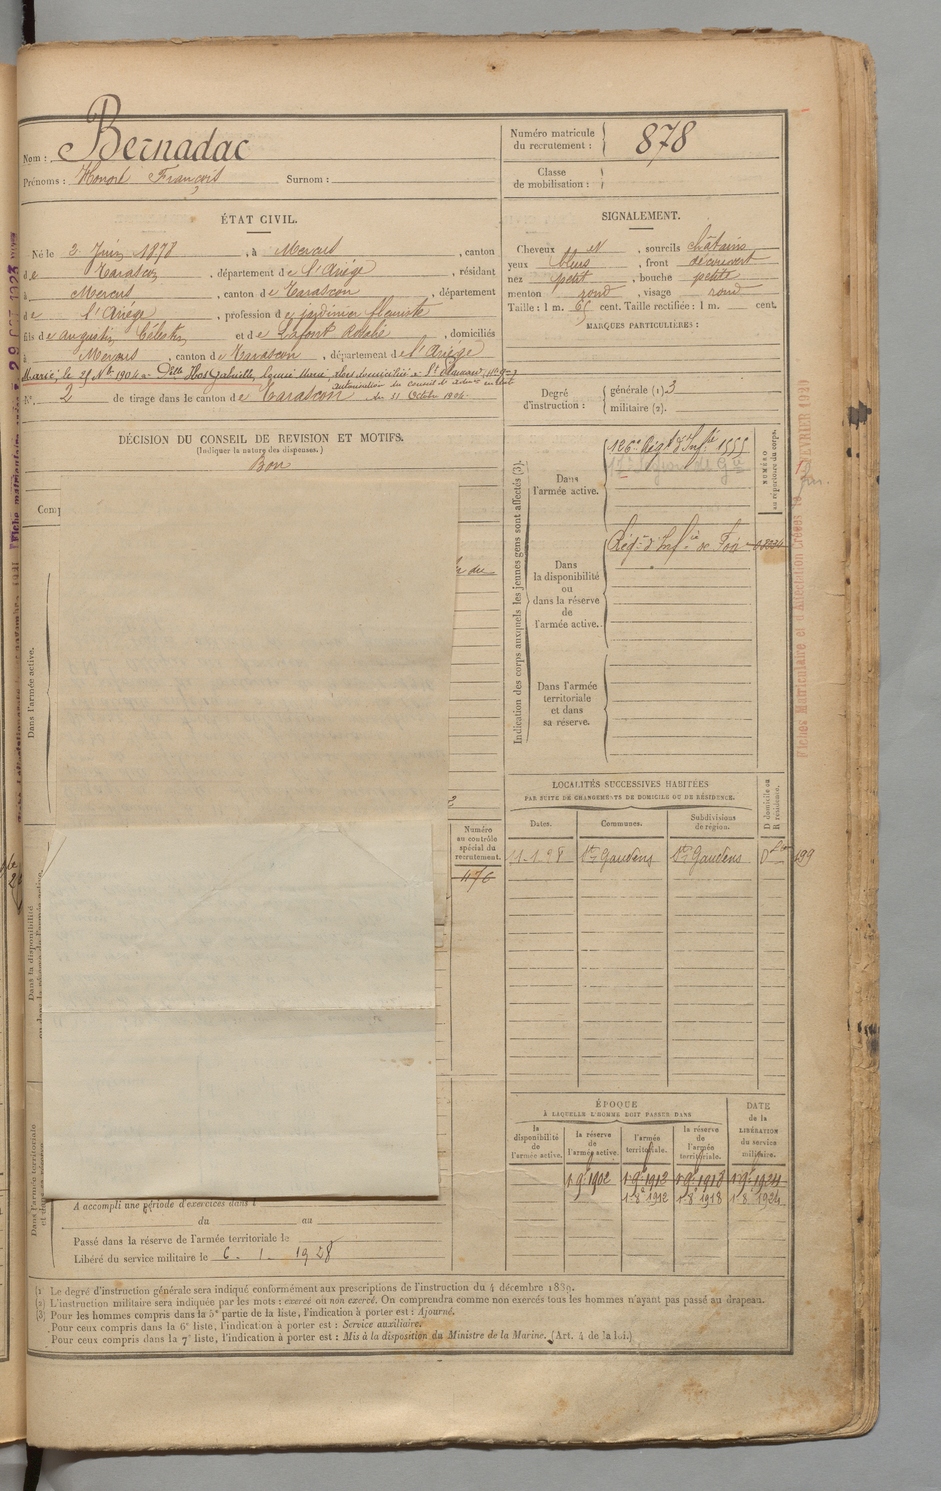 Nom : Bernadac
Prénoms : Honoré François Surnom :
Numéro matricule du recrutement : 878
Classe de mobilisation :
ÉTAT CIVIL.
Né le 2 Juin 1878, à Mercus, canton
de Tarascon, département de l'Ariège, résidant
à Mercus, canton de Tarascon, département
de l'Ariège, profession de jardinier fleuriste
fils de Augustin Célestin et de Lafont Rosalie, domiciliés
à Mercus, canton de Tarascon, département de l'Ariège
Marié le 25 9bre 1904 à Delle
autorisation du conseil d'adm
du 11 Octobre 1904
N° 2 de tirage dans le canton de Tarascon
SIGNALEMENT.
Cheveux N, sourcils châtains
yeux bleus, front découvert
nez petit, bouche petite
menton rond, visage rond
Taille : 1 m. 65 cent. Taille rectifiée : 1 m. cent.
MARQUES PARTICULIÈRES :
Degré d'instruction : générale (1) 3
militaire (2).
DÉCISION DU CONSEIL DE REVISION ET MOTIFS.
(Indiquer la nature des dispenses.)
Bon
Comp
Dans l'armée active.
Dans la disponibilité
ou dans la réserve de l'armée active.
Dans l'armée territoriale
Indication des corps auxquels les jeunes gens sont affectés (3).
Dans l'armée active.
126e Régt d'Infie 1555
NUMÉRO au répertoire du corps.
Dans la disponibilité ou dans la réserve de l'armée active.
Régt d'Infie de Foix
Dans l'armée territoriale et dans sa réserve.
Fiches Matriculaire et d'Affectation Créées le FEVRIER 19
Numéro au contrôle spécial du recrutement.
1176
LOCALITÉS SUCCESSIVES HABITÉES
PAR SUITE DE CHANGEMENTS DE DOMICILE OU DE RÉSIDENCE.
Dates. Communes. Subdivisions de région. D domicile ou R résidence.
11-1-08 St Gaudens St Gaudens D 199
ÉPOQUE
À LAQUELLE L'HOMME DOIT PASSER DANS
la disponibilité de l'armée active.
la réserve de l'armée active.
l'armée territoriale.
la réserve de l'armée territoriale.
DATE de la LIBÉRATION du service militaire.
1 9e 1902 1 9e 1912 1 9e 1918 1 9e 1924
1 8e 1912 1 8e 1918 1 8e 1924
A accompli une période d'exercices dans l
du au
Passé dans la réserve de l'armée territoriale le
Libéré du service militaire le 6 - 1 - 1928
(1) Le degré d'instruction générale sera indiqué conformément aux prescriptions de l'instruction du 4 décembre 1889.
(2) L'instruction militaire sera indiquée par les mots : exercé ou non exercé. On comprendra comme non exercés tous les hommes n'ayant pas passé au drapeau.
(3) Pour les hommes compris dans la 5e partie de la liste, l'indication à porter est : Ajourné.
Pour ceux compris dans la 6e liste, l'indication à porter est : Service auxiliaire.
Pour ceux compris dans la 7e liste, l'indication à porter est : Mis à la disposition du Ministre de la Marine. (Art. 4 de la loi.)